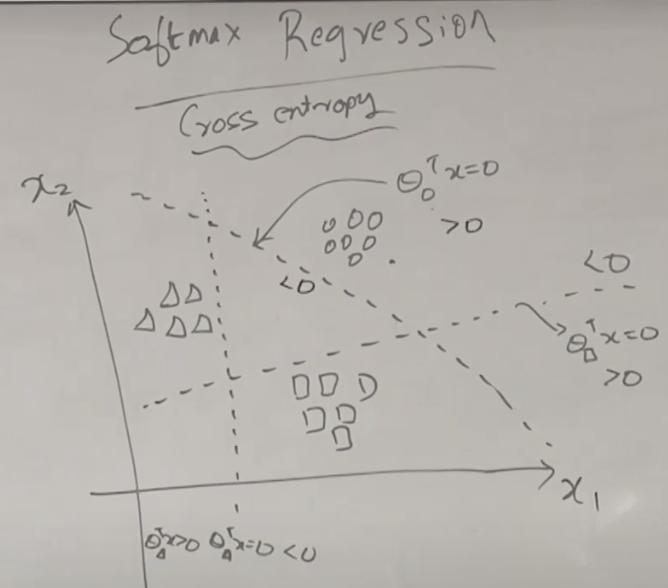 Softmax Regression
Cross entropy
x₂
θ₀ᵀx=0
>0
<0
<0
θ□ᵀx=0
>0
x₁
θ△ᵀx>0 θ△ᵀx=0 <0